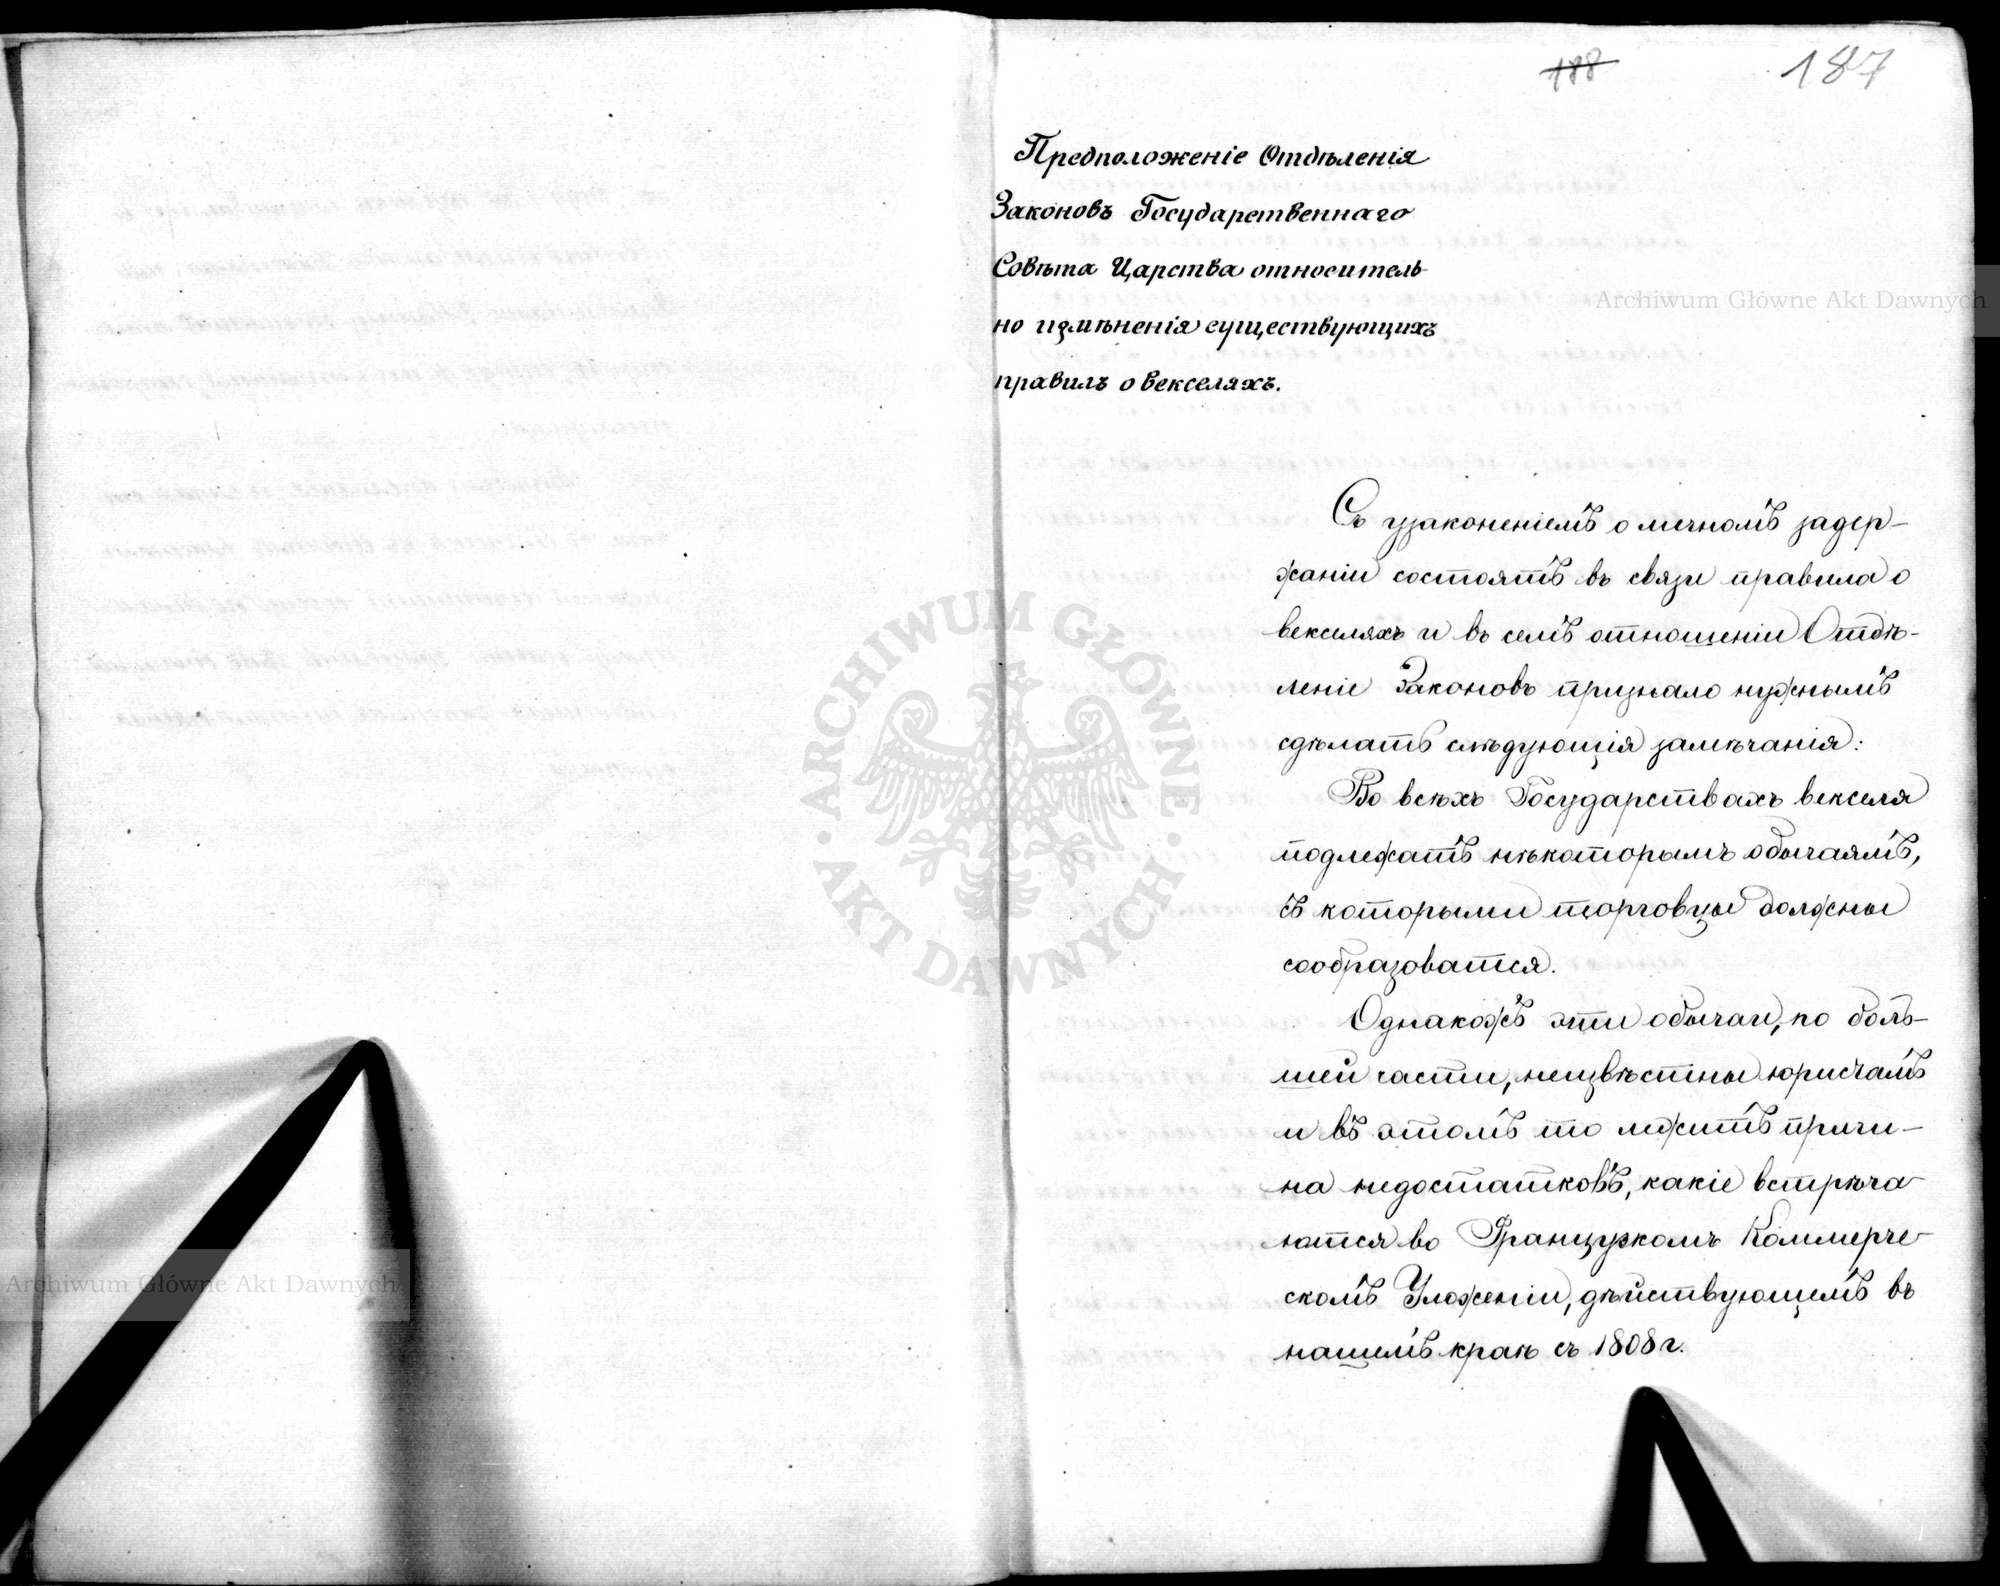 188
187
Предположеніе Отдѣленія
Законовъ Государственнаго
Совѣта Царства относитель-
но измѣненія существующихъ
правилъ о векселяхъ.
Archiwum Główne Akt Dawnych
Съ узаконеніемъ о личномъ задер-
жаніи состоятъ въ связи правила о
векселяхъ и въ семъ отношеніи Отдѣ-
леніе Законовъ признало нужнымъ
сдѣлать слѣдующія замѣчанія:
Во всѣхъ Государствахъ векселя
подлежатъ нѣкоторымъ обычаямъ,
съ которыми торговцы должны
сообразоватся.
Однакожъ эти обычаи, по боль-
шей части, неизвѣстны юристамъ
и въ этомъ то лежитъ причи-
на недостатковъ, какіе встрѣча-
ются во Французкомъ Коммерче-
скомъ Уложеніи, дѣйствующемъ въ
нашемъ краѣ съ 1808 г.
ARCHIWUM GŁÓWNE
AKT DAWNYCH
Archiwum Główne Akt Dawnych